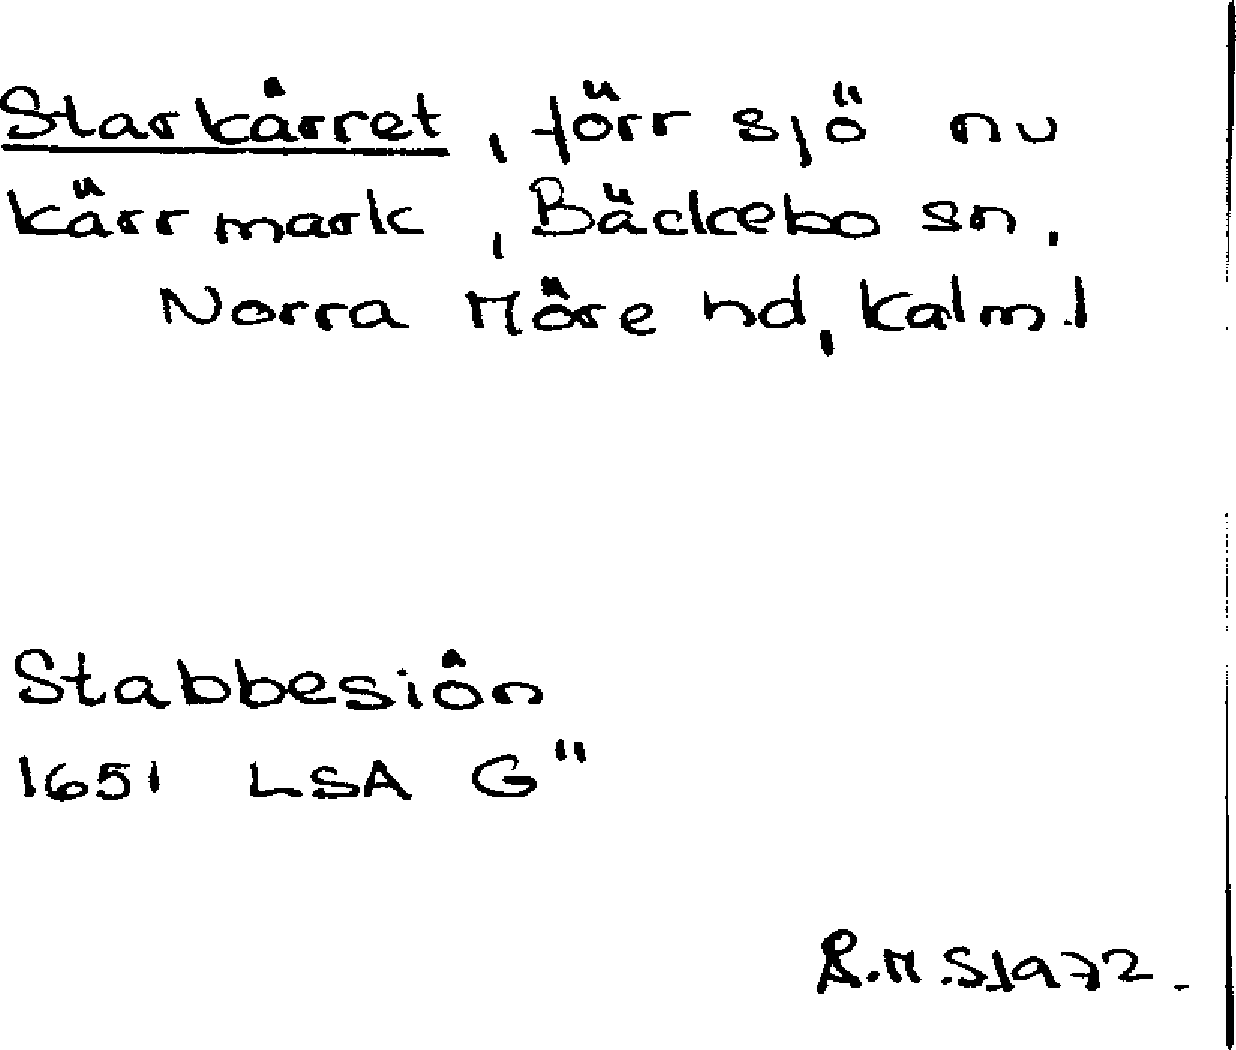 Starkärret, förr sjö nu
kärrmark, Bäckebo sn.
Norra Möre hd, Kalm.l
Stabbesiön
1651 LSA G"
R.M.S1972.